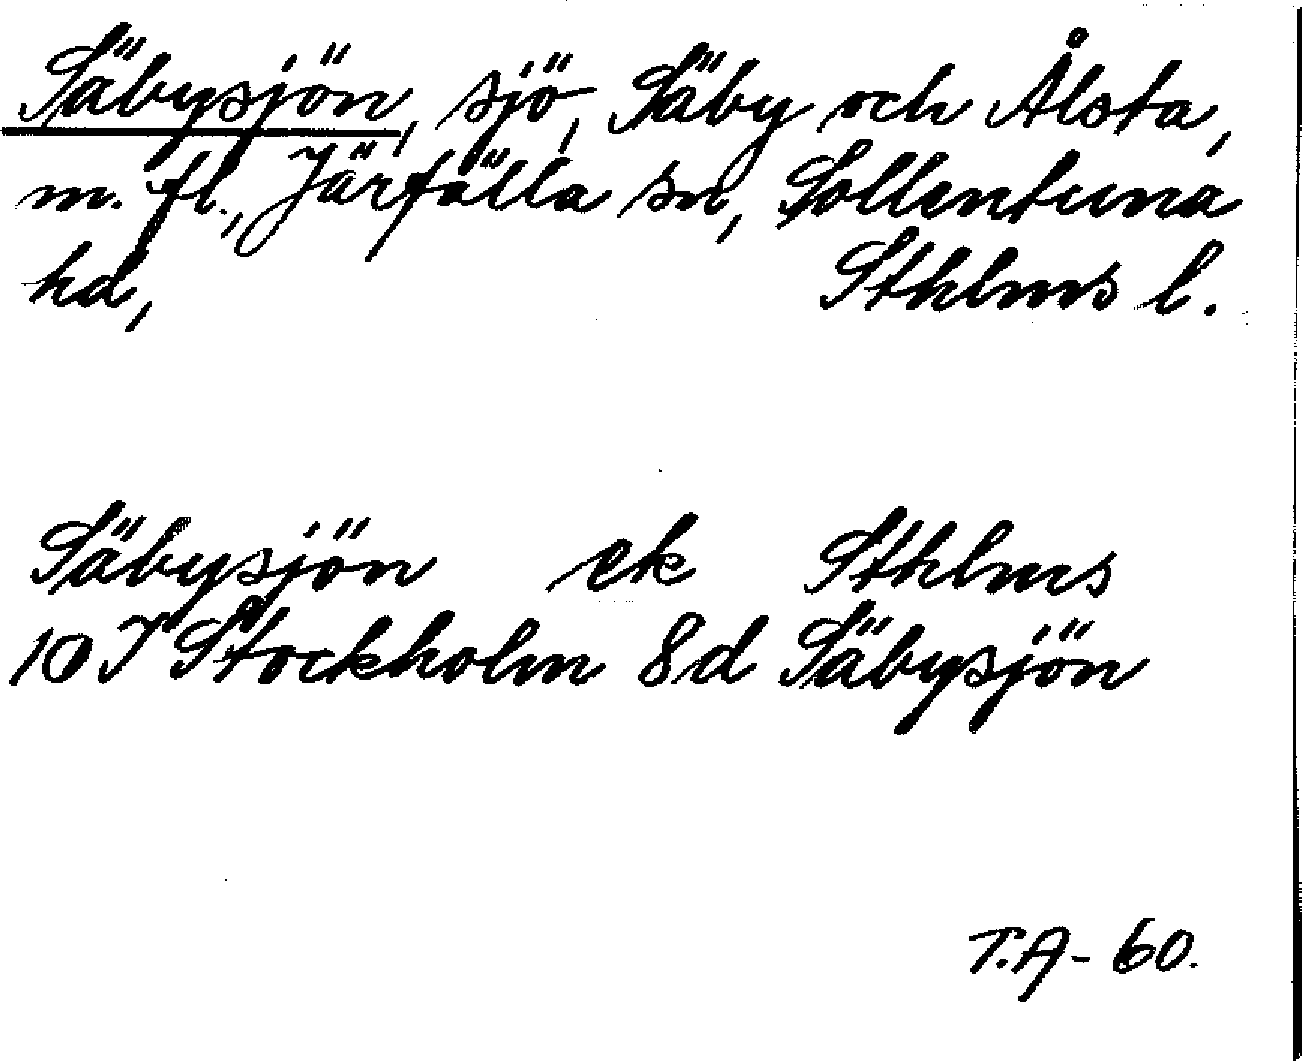 Säbysjön, sjö, Säby och Ålsta,
m. fl., Järfälla sn, Sollentuna
hd, Sthlms l.
Säbysjön ek Sthlms
10 I Stockholm 8d Säbysjön
T.A-60.